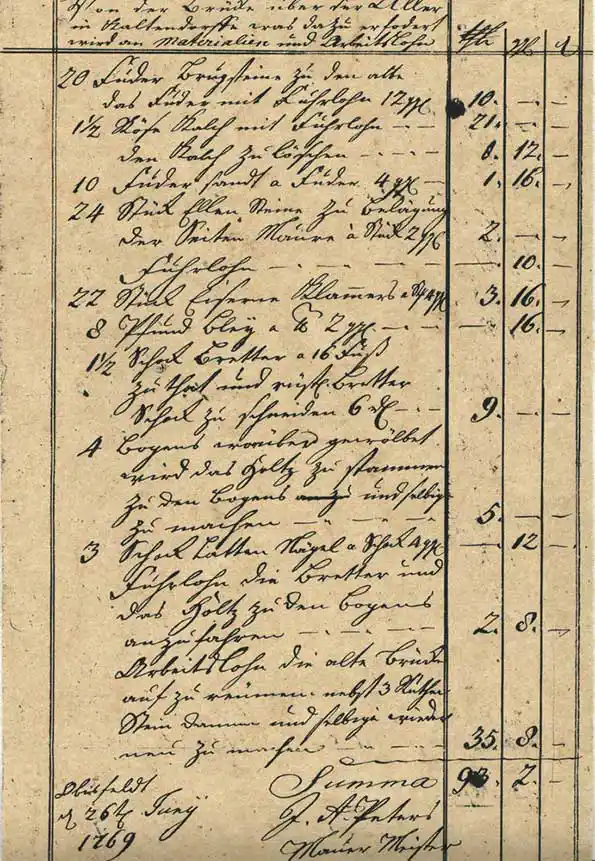 Von der Brüke über der Aller
in Kaltendorffe was dazu erfodert
wird an Materialien und Arbeitslohn thl ggl d
20 Fuder Brugsteine zu den alte
das Fuder mit Fuhrlohn 12 ggl 10. — —
1½ Röse Kalch mit Fuhrlohn — — 21. — —
den Kalch zu löschen — — — 8. 12. —
10 Fuder sandt a Fuder 4 ggl — 1. 16. —
24 Stük Ellen Steine zu Belägung
der Seiten Maure à Stük 2 ggl 2. — —
Fuhrlohn — — — — — 10. —
22 Stük Eiserne Klammers a St 4 ggl 3. 16. —
8 Pfund Bley a ℔ 2 ggl. — — — 16. —
1½ Schok Bretter a 16 Fuß
zu that und rüst. Bretter
Schok zu schneiden 6 — — 9. — —
4 Bogens worüber gewölbet
wird das Holtz zu stammen
zu den Bogens und selbige
zu machen — — — — 5. — —
3 Schok Latten Nägel a Schok 4 ggl — 12 —
Fuhrlohn die Bretter und
das Holtz zu den Bogens
anzufahren — — — — 2. 8. —
Arbeitslohn die alte Brüke
auf zu räumen nebst 3 Ruthen
Stein Damm und selbige wieder
neu zu machen — — — 35. 8. —
Summa 93. 2. —
Obisfeldt
d 26t Juny J. A. Peters
1769 Maurer Meister